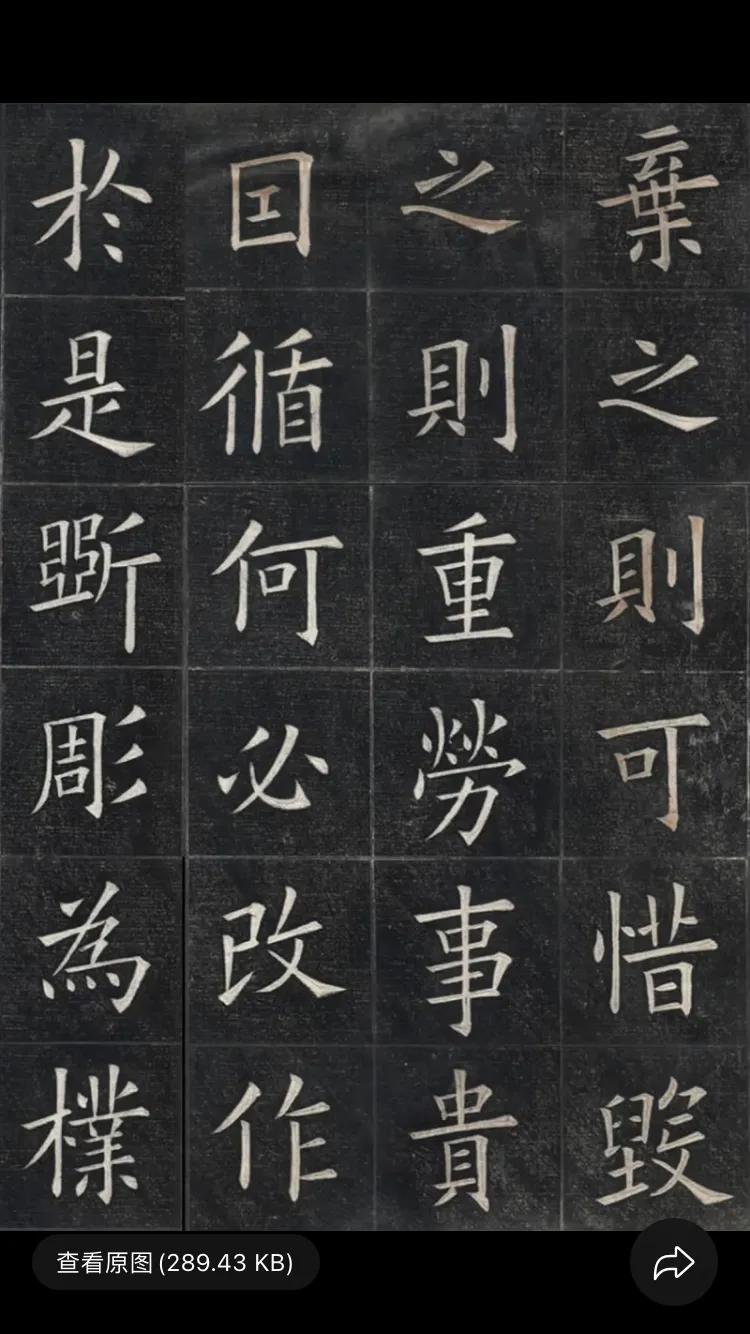 棄之則可惜毀
之則重勞事貴
囙循何必改作
於是斲彫為樸
查看原图 (289.43 KB)